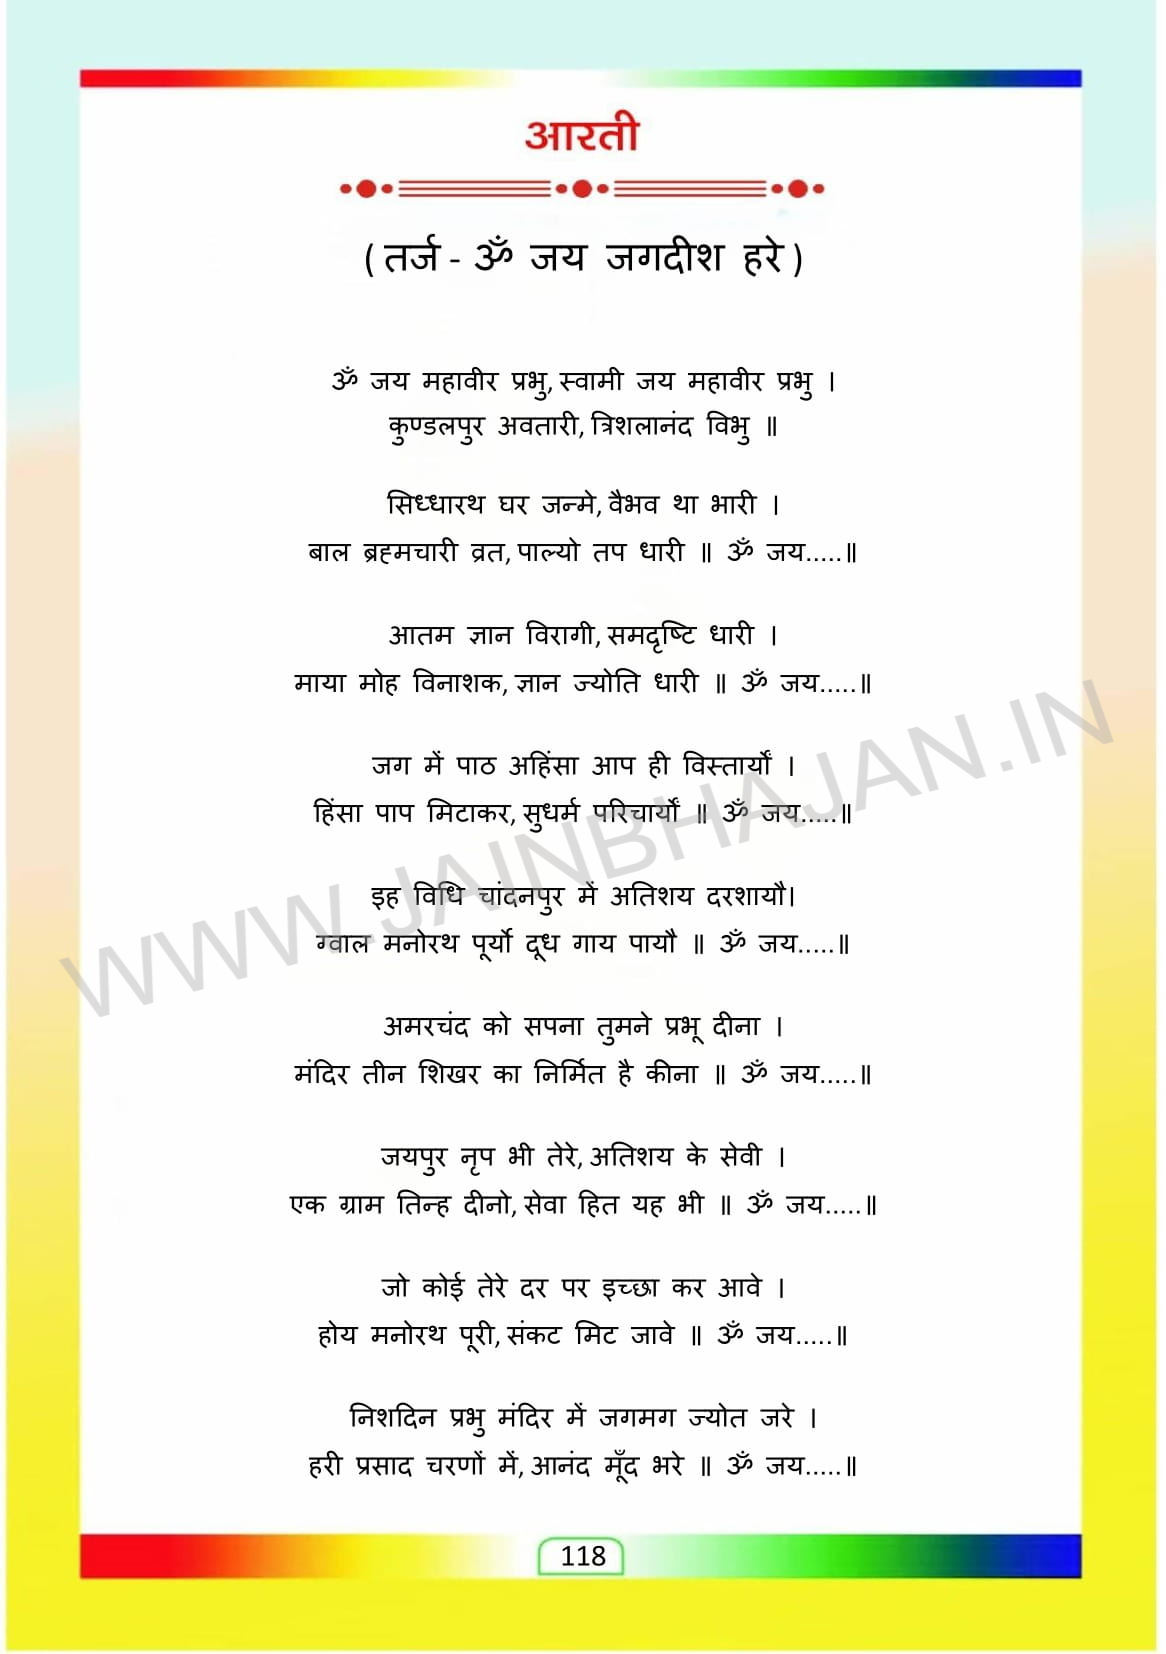 आरती
( तर्ज - ॐ जय जगदीश हरे )
ॐ जय महावीर प्रभु, स्वामी जय महावीर प्रभु ।
कुण्डलपुर अवतारी, त्रिशलानंद विभु ॥
सिध्धारथ घर जन्मे, वैभव था भारी ।
बाल ब्रह्मचारी व्रत, पाल्यो तप धारी ॥ ॐ जय.....॥
आतम ज्ञान विरागी, समदृष्टि धारी ।
माया मोह विनाशक, ज्ञान ज्योति धारी ॥ ॐ जय.....॥
जग में पाठ अहिंसा आप ही विस्तार्यों ।
हिंसा पाप मिटाकर, सुधर्म परिचार्यों ॥ ॐ जय.....॥
इह विधि चांदनपुर में अतिशय दरशायौ।
ग्वाल मनोरथ पूर्यो दूध गाय पायौ ॥ ॐ जय.....॥
अमरचंद को सपना तुमने प्रभू दीना ।
मंदिर तीन शिखर का निर्मित है कीना ॥ ॐ जय.....॥
जयपुर नृप भी तेरे, अतिशय के सेवी ।
एक ग्राम तिन्ह दीनो, सेवा हित यह भी ॥ ॐ जय.....॥
जो कोई तेरे दर पर इच्छा कर आवे ।
होय मनोरथ पूरी, संकट मिट जावे ॥ ॐ जय.....॥
निशदिन प्रभु मंदिर में जगमग ज्योत जरे ।
हरी प्रसाद चरणों में, आनंद मूँद भरे ॥ ॐ जय.....॥
WWW.JAINBHAJAN.IN
118